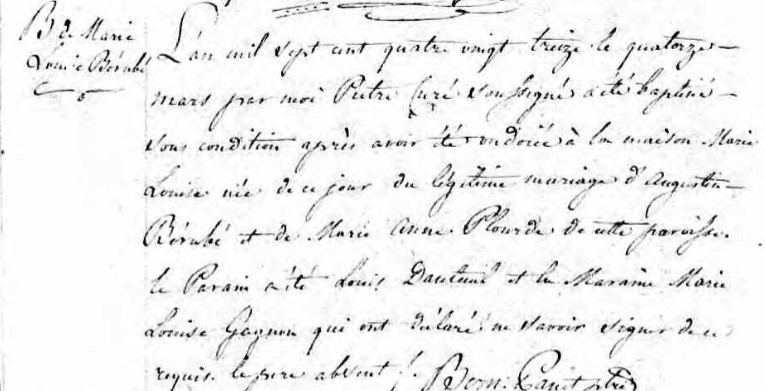 B de Marie
Louise Bérubé
L'an mil sept cent quatre vingt treize le quatorze
mars par moi Prêtre Curé soussigné a été baptisé
sous condition après avoir été ondoiée à la maison Marie
Louise née de ce jour du légitime mariage d'Augustin
Bérubé et de Marie Anne Plourde de cette paroisse.
le Parain a été Louis Dauteuil et la Maraine Marie
Louise Gagnon qui ont déclaré ne savoir signer de ce
requis. le pere absent /. Bern: Panet ptre